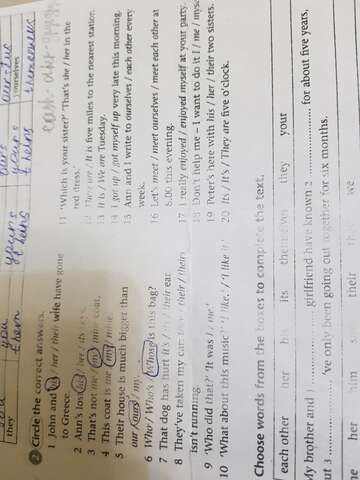 you
they
you
them
yours
theirs
ours
yours
theirs
ourselves
yourselves
themselves
each other
2 Circle the correct answers.
1 John and his / her / their wife have gone
to Greece.
2 Ann's lost
3 That's not me / my / mine coat.
4 This coat is me / my / mine.
5 Their house is much bigger than
our / ours / my
6 Who / Who's / Whose is this bag?
7 That dog has hurt it's / its / their ear.
8 They've taken my car / their / theirs
isn't running.
9 'Who did that?' 'It was I / me.'
10 'What about this music?' 'I like. / 'I like it.'
11 'Which is your sister?' 'That's she / her in the
red dress.'
12 There are / It is five miles to the nearest station.
13 It is / We are Tuesday.
14 I got up / got myself up very late this morning.
15 Ann and I write to ourselves / each other every
week.
16 Let's meet / meet ourselves / meet each other at
6.00 this evening.
17 I really enjoyed / enjoyed myself at your party.
18 Don't help me – I want to do it I / me / myself
19 Peter's here with his / her / their two sisters.
20 Its / It's / They are five o'clock.
Choose words from the boxes to complete the text.
each other her his its themselves they your
My brother and 1 girlfriend have known 2 for about five years,
but 3 've only been going out together for six months.
he her him s their we